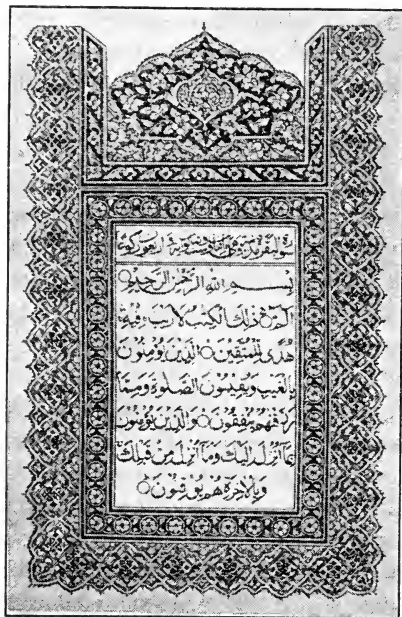 سورة البقرة
بسم الله الرحمن الرحيم
الم ذٰلك الكتٰب لا ريب فيه
هدى للمتقين الذين يؤمنون
بالغيب ويقيمون الصلوة ومما
رزقنهم ينفقون والذين يؤمنون
بما انزل اليك وما انزل من قبلك
وبالاخرة هم يوقنون